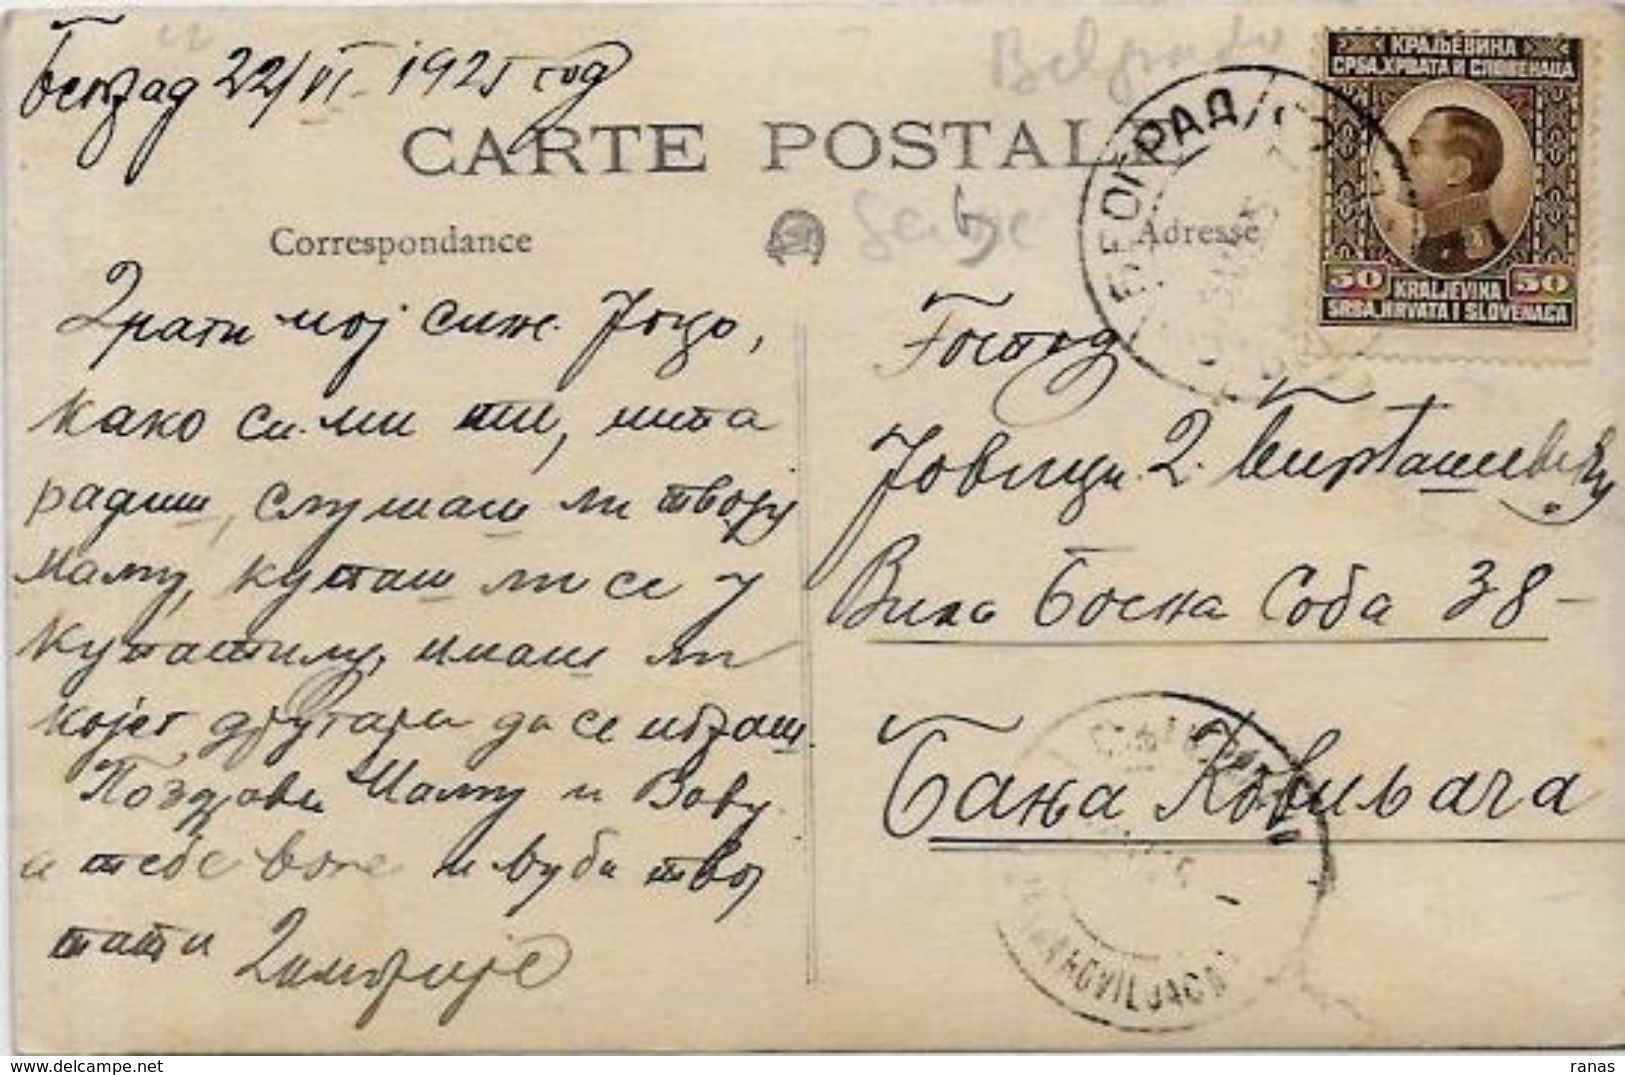 Београд 22/VI 1925 год
Belgrade
CARTE POSTALE
Serbie
Correspondance
Adresse
КРАЉЕВИНА
СРБА, ХРВАТА И СЛОВЕНАЦА
50 50
KRALJEVINA
SRBA, HRVATA I SLOVENACA
БЕОГРАД
Драги мој сине Јоцо,
како си ми ти, шта
радиш, слушаш ли твоју
маму, купаш ли се у
купатилу, имаш ли
којег другара да се играш.
Поздрави Маму и
а тебе воле и љуби твој
тати Димитрије
Господ
Јовици Д.
Вила Босна Соба 38-
Бања Ковиљача
KOVILJACA
ranas